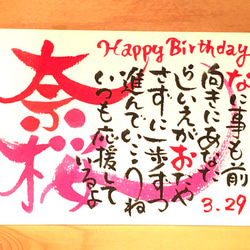 Happy Birthday
奈桜
なに事も前
向きにあなた
らしいえがおたや
さずに一歩ずつ
進んでいこうね
いつも応援して
いるよ
3.29